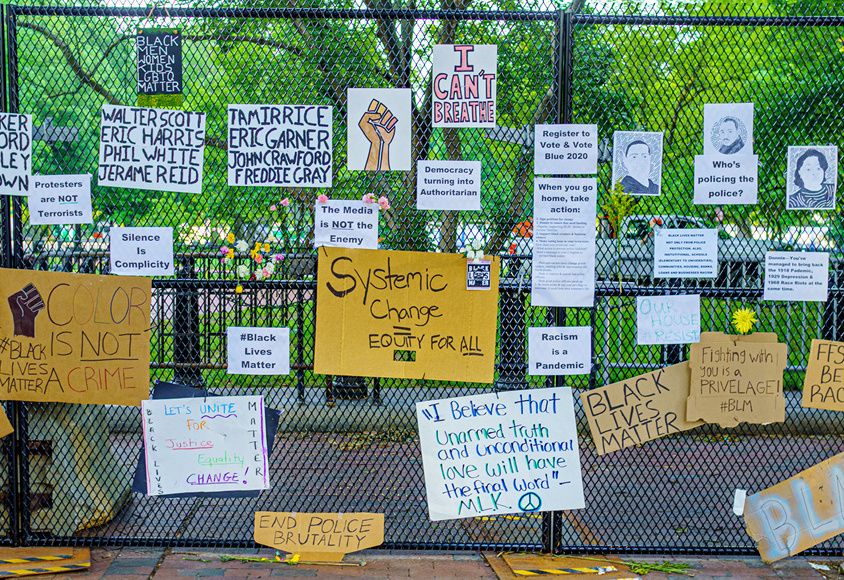 BLACK
MEN
WOMEN
KIDS
LGBTQ
MATTER
I
CAN'T
BREATHE
WALTER SCOTT
ERIC HARRIS
PHIL WHITE
JERAME REID
TAMIR RICE
ERIC GARNER
JOHN CRAWFORD
FREDDIE GRAY
KER
ORD
LEY
OWN
Protesters
are NOT
Terrorists
Democracy
turning into
Authoritarian
Register to
Vote & Vote
Blue 2020
Who's
policing the
police?
The Media
is NOT the
Enemy
When you go
home, take
action:
Silence Is
Complicity
BLACK LIVES MATTER
NOT ONLY FROM POLICE
Donnie—You've
managed to bring back
the 1918 Pademic,
1929 Depression &
1968 Race Riots at the
same time.
COLOR
IS NOT
A CRIME
#BLACK
LIVES
MATTER
Systemic
Change
=
EQUITY FOR ALL
BLACK
LIVES
MATTER
OUR
HOUSE
#RESIST
#Black
Lives
Matter
Racism
is a
Pandemic
Fighting with
you is a
PRIVELAGE!
#BLM
BLACK
LIVES
MATTER
FFS
BE
RAC
LET'S UNITE
FOR
Justice
Equality
CHANGE!
BLACK LIVES
MATTER
"I Believe that
Unarmed truth
and unconditional
love will have
the final word"-
MLK
END POLICE
BRUTALITY
BL